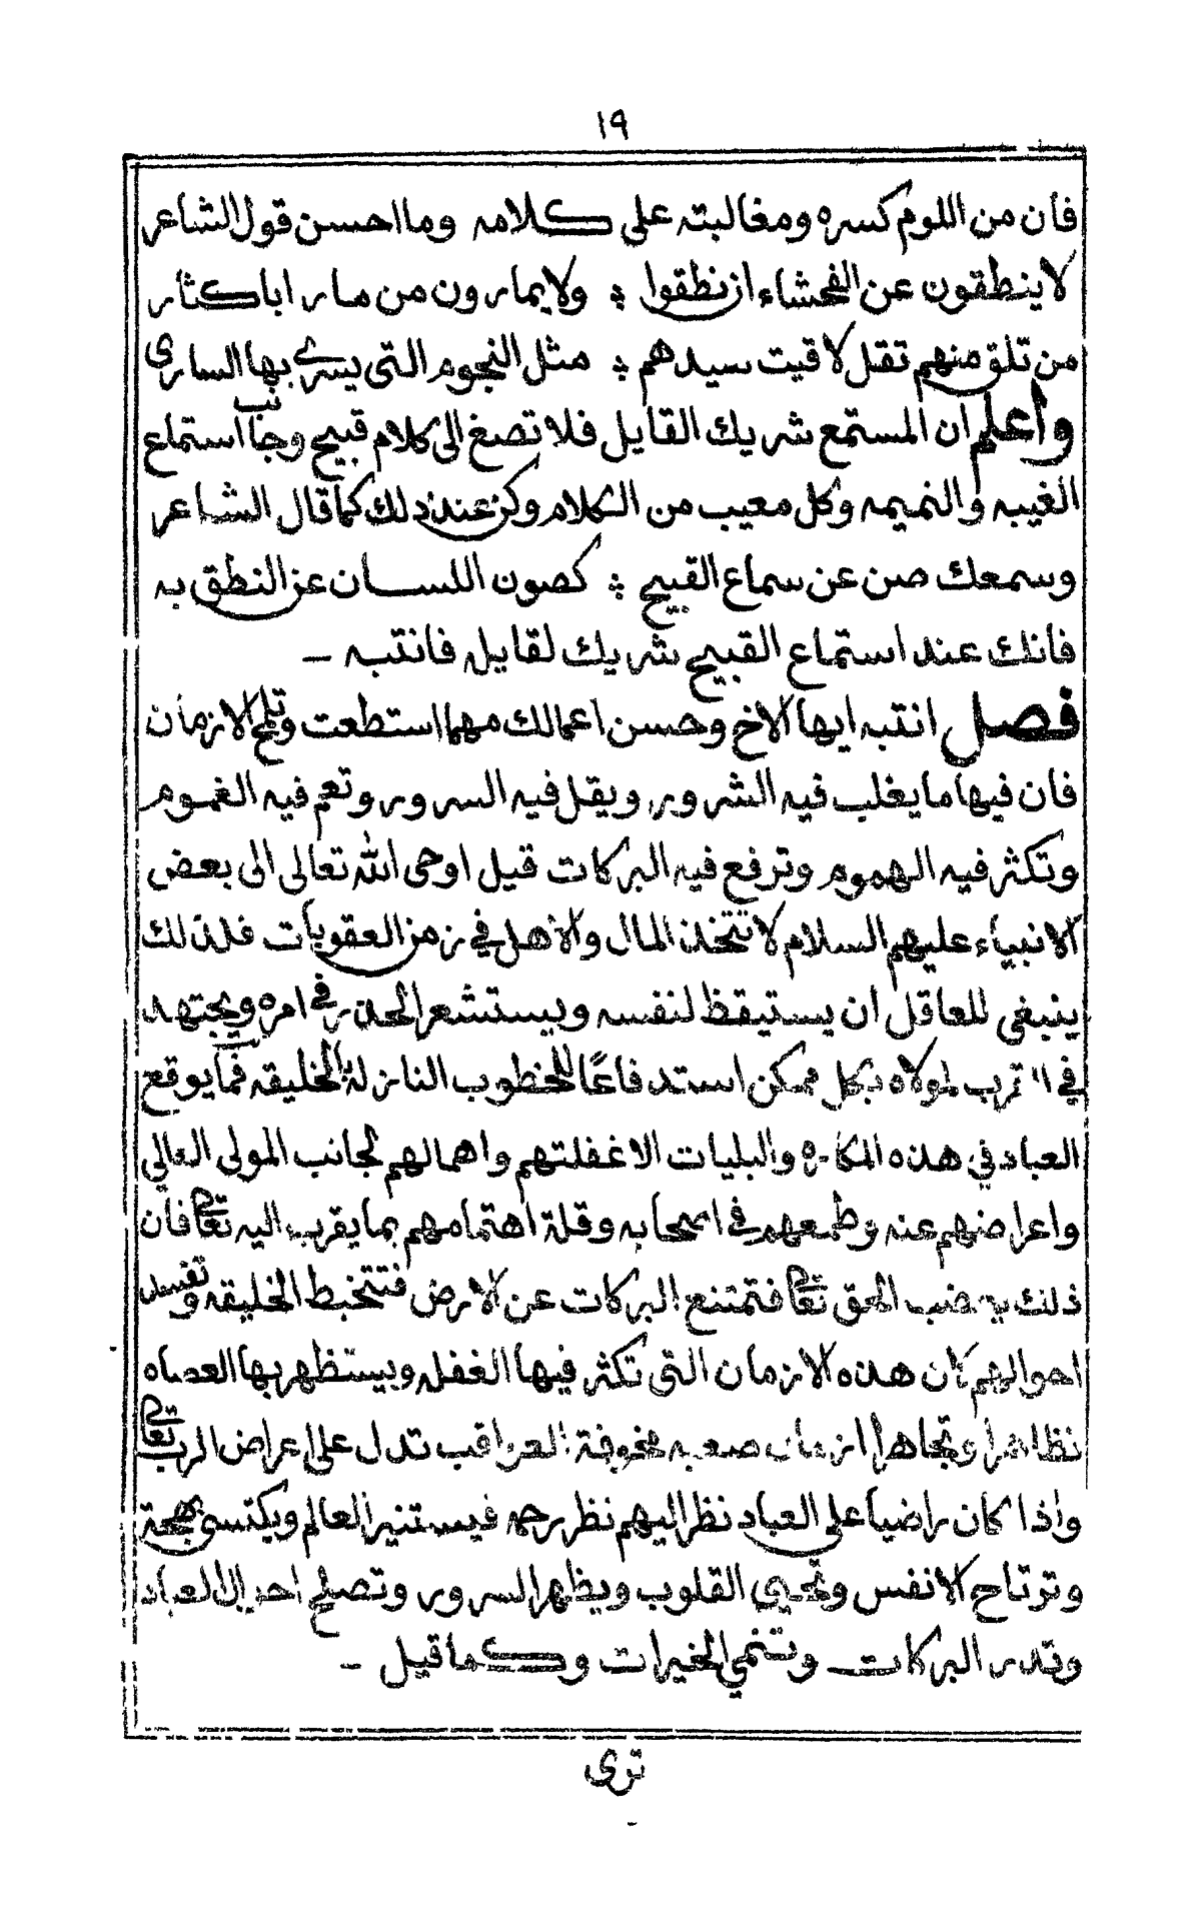 ١٩
فان من اللوم كسره ومغالبته على كلامه وما احسن قول الشاعر
لا ينطقون عن الفحشاء ان نطقوا ؛ ولا يمارون من مارا باكثار
من تلق منهم تقل لاقيت سيدهم ؛ مثل النجوم التى يسرى بها السارى
واعلم ان المستمع شريك القايل فلا تصغ الى كلام قبيح وجانب استماع
الغيبه والنميمه وكل معيب من الكلام وكن عند ذلك كما قال الشاعر
وسمعك صن عن سماع القبيح ؛ كصون اللسان عن النطق به
فانك عند استماع القبيح شريك لقايله فانتبه –
فصل انتبه ايها الاخ وحسن اعمالك مهما استطعت وتلمح الازمان
فان فيها ما يغلب فيه الشرور ويقل فيه السرور وتعم فيه الغموم
وتكثر فيه الهموم وترفع فيه البركات قيل اوحى الله تعالى الى بعض
الانبياء عليهم السلام لا تتخذ المال والاهل في زمن العقوبات فلذلك
ينبغي للعاقل ان يستيقظ لنفسه ويستشعر الحذر في امره ويجتهد
في لمولاه بكل ممكن استدفاعًا للخطوب النازلة بالخليقه فما يوقع
العباد في هذه المكاره والبليات الا غفلتهم واهمالهم لجانب المولى العالي
واعراضهم عنه وطمعهم في اصحابه وقلة اهتمامهم بما يقرب اليه تعالى فان
ذلك يغضب الحق تعالى فتمتنع البركات عن الارض فتتخبط الخليقه وتفسد
احوالهم كان هذه الازمان التى تكثر فيها الغفله ويستظهر بها العصاه
تظاهرا وتجاهرا ازمان صعبه مخوفة العواقب تدل على اعراض الرب تعالى
واذا كان راضيا على العباد نظر اليهم نظر رحمه فيستنير العالم ويكتسى بهجة
وترتاح الانفس وتحيى القلوب ويظهر السرور وتصلح احوال العباد
وتدر البركات وتنمي الخيرات وكما قيل –
ترى